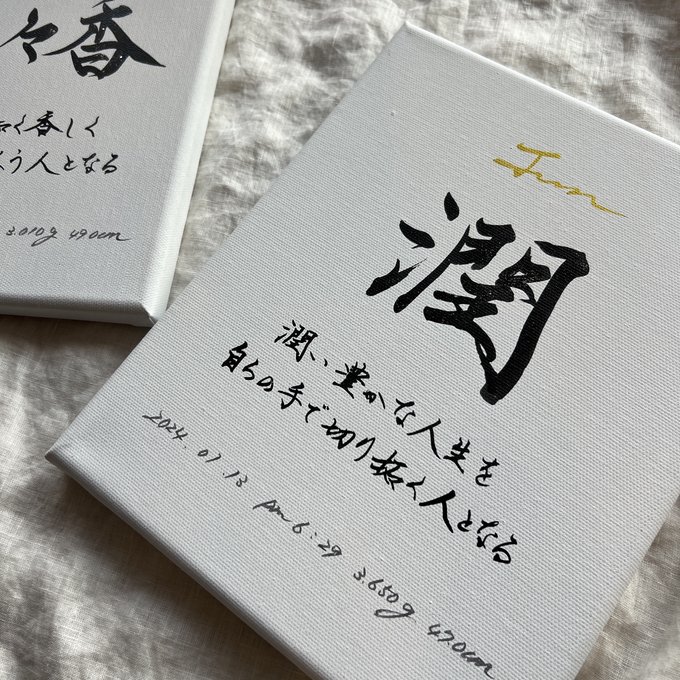 々香
く香しく
う人となる
3.010g 49.0cm
Jun
潤
潤い豊かな人生を
自らの手で切り拓く人となる
2024.01.13 pm6:29 3.650g 47.0cm